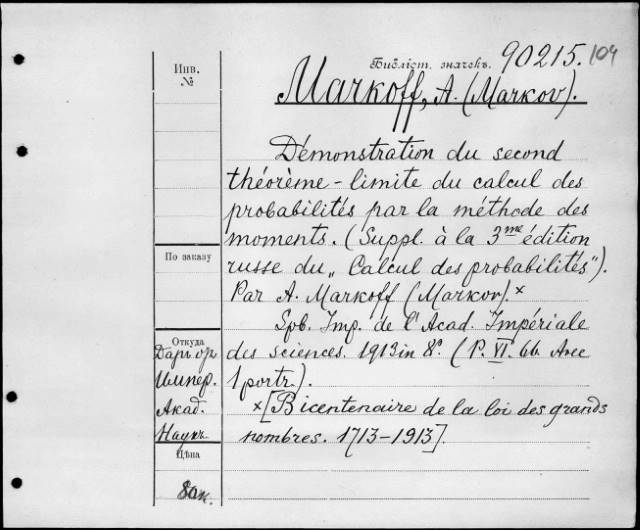 Библіот. значекъ. 90215. 104
Инв.
№
Markoff, A. (Markov).
Démonstration du second
théorème-limite du calcul des
probabilités par la méthode des
moments. (Suppl. à la 3me édition
По заказу
russe du „Calcul des probabilités“).
Par A. Markoff (Markov).×
Spb. Imp. de l'Acad. Impériale
Откуда
Даръ от
des sciences. 1913 in 8º. (P. VI. 66. Avec
Импер.
1 portr.).
Акад.
×[Bicentenaire de la loi des grands
Наукъ
nombres. 1713-1913].
Цѣна
80к.